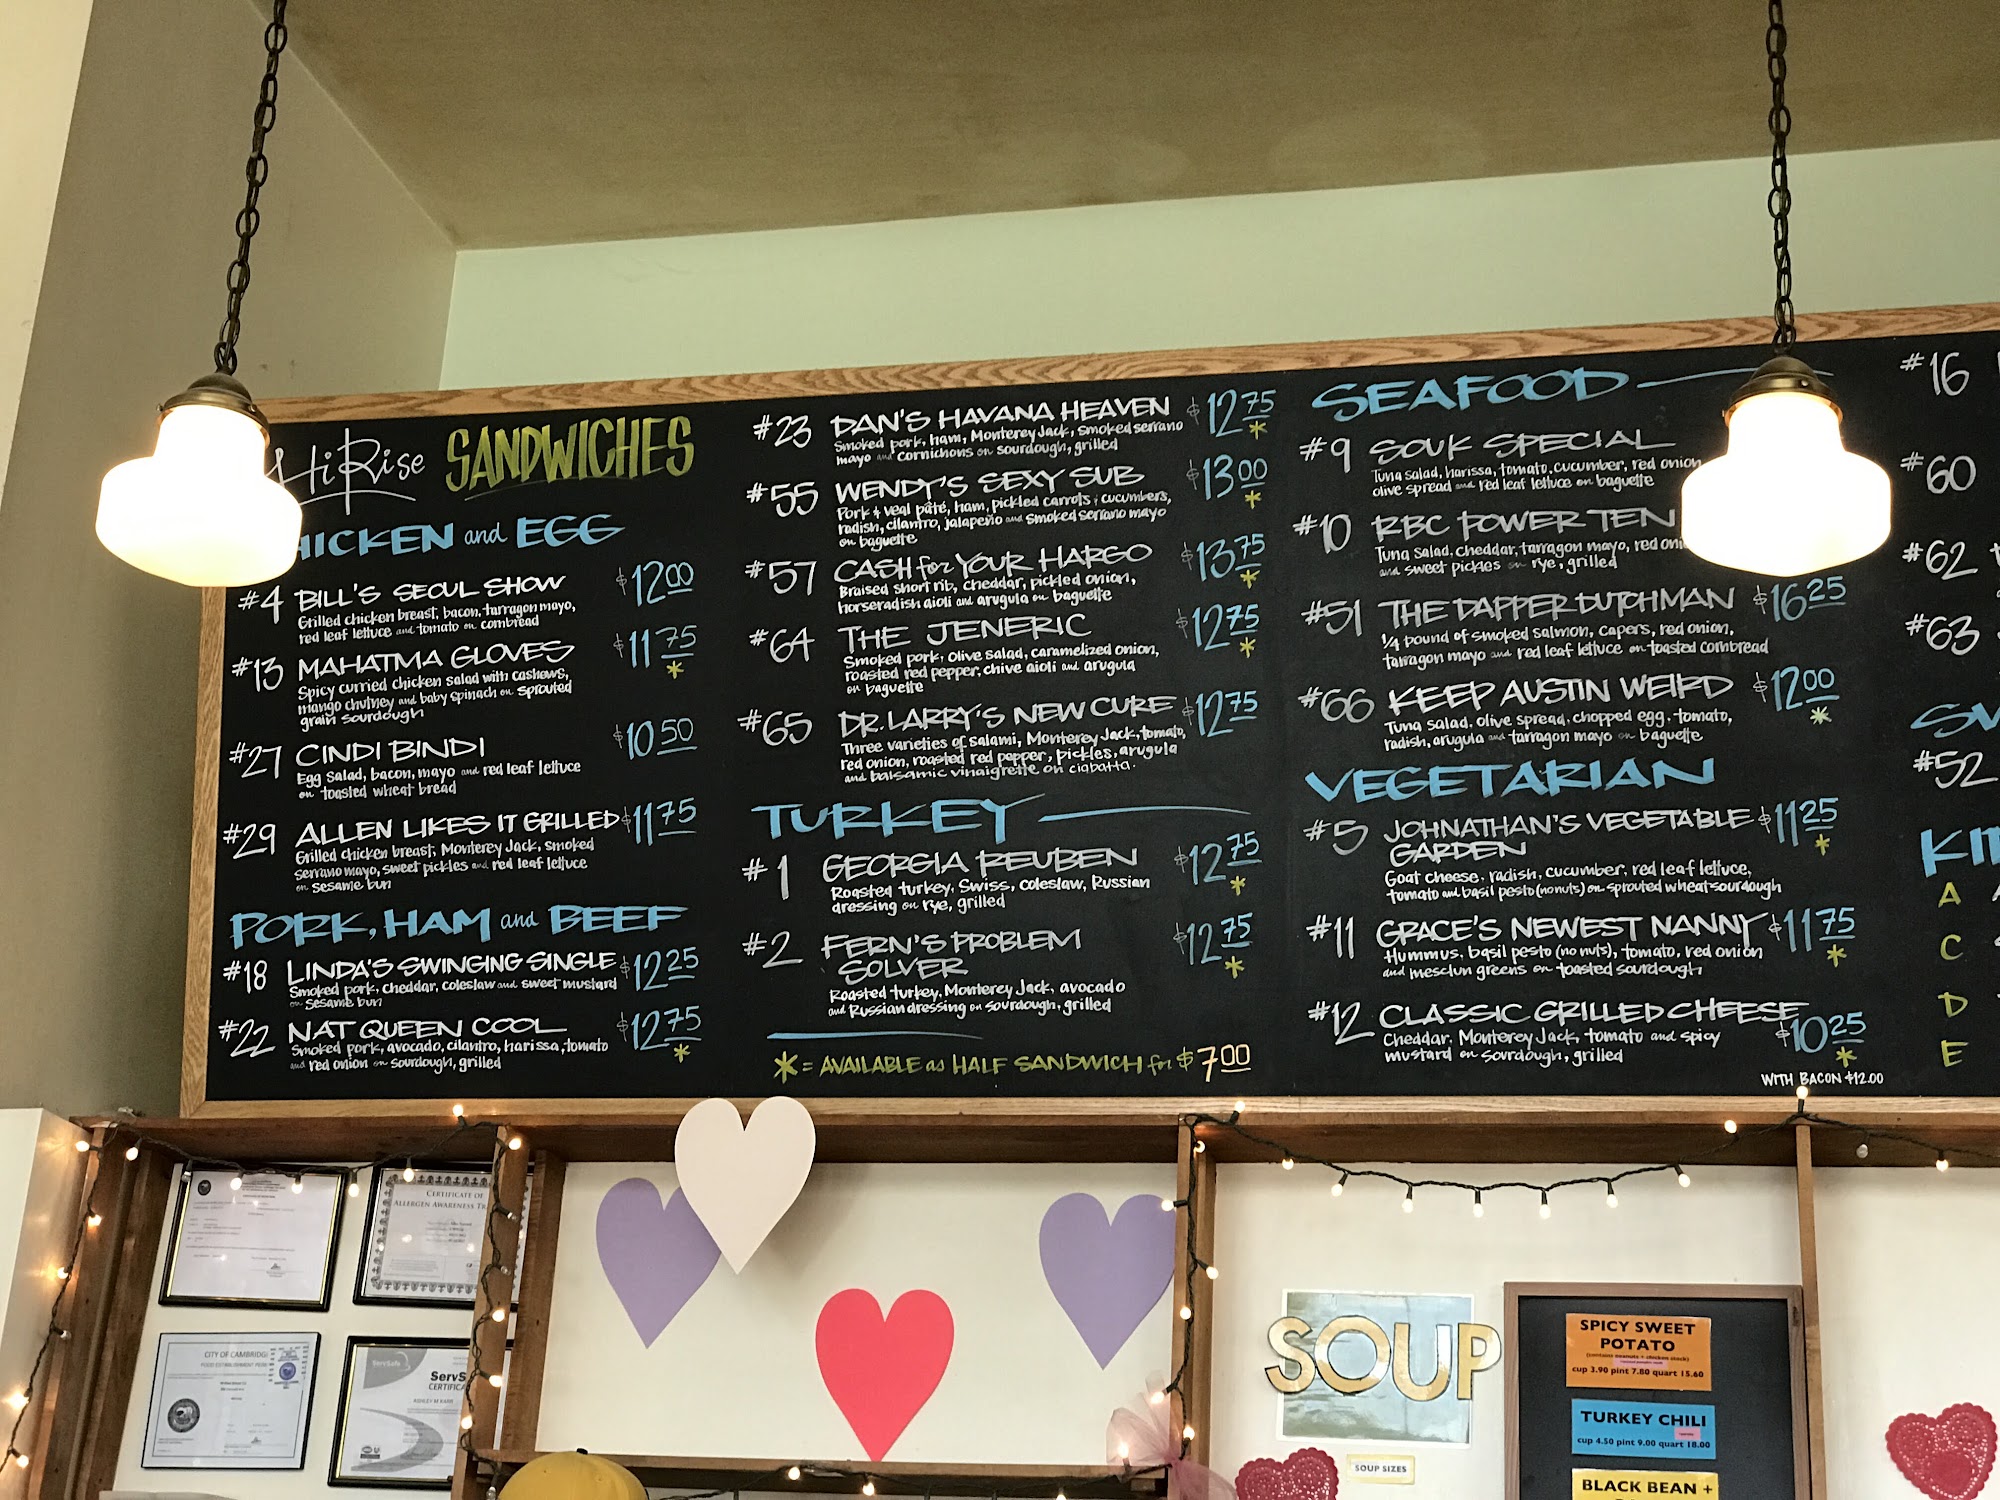 HiRise SANDWICHES
HICKEN and EGG
#4 BILL'S SEOUL SHOW $12.00
Grilled chicken breast, bacon, tarragon mayo,
red leaf lettuce and tomato on cornbread
#13 MAHATMA GLOVES $11.75 *
Spicy curried chicken salad with cashews,
mango chutney and baby spinach on sprouted
grain sourdough
#27 CINDI BINDI $10.50
Egg salad, bacon, mayo and red leaf lettuce
on toasted wheat bread
#29 ALLEN LIKES IT GRILLED $11.75
Grilled chicken breast, Monterey Jack, smoked
serrano mayo, sweet pickles and red leaf lettuce
on sesame bun
PORK, HAM and BEEF
#18 LINDA'S SWINGING SINGLE $12.25
Smoked pork, cheddar, coleslaw and sweet mustard
on sesame bun
#22 NAT QUEEN COOL $12.75 *
Smoked pork, avocado, cilantro, harissa, tomato
and red onion on sourdough, grilled
#23 DAN'S HAVANA HEAVEN $12.75 *
Smoked pork, ham, Monterey Jack, smoked serrano
mayo and cornichons on sourdough, grilled
#55 WENDY'S SEXY SUB $13.00 *
Pork + veal pâté, ham, pickled carrots + cucumbers,
radish, cilantro, jalapeño and smoked serrano mayo
on baguette
#57 CASH for YOUR HARGO $13.75 *
Braised short rib, cheddar, pickled onion,
horseradish aioli and arugula on baguette
#64 THE JENERIC $12.75 *
Smoked pork, olive salad, caramelized onion,
roasted red pepper, chive aioli and arugula
on baguette
#65 DR. LARRY'S NEW CURE $12.75
Three varieties of salami, Monterey Jack, tomato,
red onion, roasted red pepper, pickles, arugula
and balsamic vinaigrette on ciabatta.
TURKEY
#1 GEORGIA REUBEN $12.75 *
Roasted turkey, Swiss, coleslaw, Russian
dressing on rye, grilled
#2 FERN'S PROBLEM $12.75 *
SOLVER
Roasted turkey, Monterey Jack, avocado
and Russian dressing on sourdough, grilled
* = AVAILABLE as HALF SANDWICH for $7.00
SEAFOOD
#9 SOUK SPECIAL
Tuna salad, harissa, tomato, cucumber, red onion
olive spread and red leaf lettuce on baguette
#10 RBC POWER TEN
Tuna salad, cheddar, tarragon mayo, red oni
and sweet pickles on rye, grilled
#51 THE DAPPER DUTCHMAN $16.25
1/4 pound of smoked salmon, capers, red onion,
tarragon mayo and red leaf lettuce on toasted cornbread
#66 KEEP AUSTIN WEIRD $12.00 *
Tuna salad, olive spread, chopped egg, tomato,
radish, arugula and tarragon mayo on baguette
VEGETARIAN
#5 JOHNATHAN'S VEGETABLE $11.25 *
GARDEN
Goat cheese, radish, cucumber, red leaf lettuce,
tomato and basil pesto (no nuts) on sprouted wheat sourdough
#11 GRACE'S NEWEST NANNY $11.75 *
Hummus, basil pesto (no nuts), tomato, red onion
and mesclun greens on toasted sourdough
#12 CLASSIC GRILLED CHEESE $10.25 *
Cheddar, Monterey Jack, tomato and spicy
mustard on sourdough, grilled
WITH BACON $12.00
#16
#60
#62
#63
SW
#52
KI
A
C
D
E
CERTIFICATE OF
ALLERGEN AWARENESS TR
CITY OF CAMBRIDGE
FOOD ESTABLISHMENT PERM
ServSafe
ServS
CERTIFICA
ASHLEY M KARR
SOUP
SOUP SIZES
SPICY SWEET
POTATO
(contains peanuts + chicken stock)
cup 3.90 pint 7.80 quart 15.60
TURKEY CHILI
cup 4.50 pint 9.00 quart 18.00
BLACK BEAN +